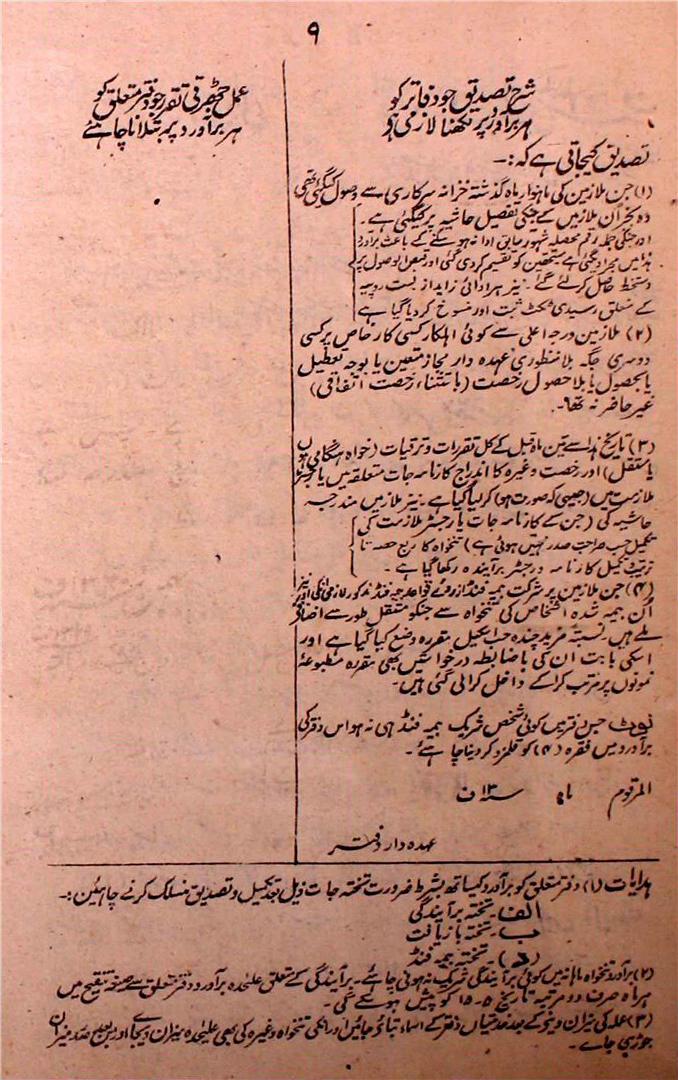 ۹
شرح تصدیق جو دفاتر کو
ہر برآورد پر لکھنا لازمی ہو
عمل جمع برقی تقرر جو دفتر متعلق کو
ہر برآورد پر بتلانا چاہئے
تصدیق کیجاتی ہے کہ :۔
(۱) جن ملازمین کی ماہوار ماہ گذشتہ خزانہ سرکاری سے وصول کیگئی تھی
وہ بجز ان ملازمین کے جنکی تفصیل حاشیہ پر کیگئی ہے ۔
اور جنکی جملہ رقم محصلہ شہور سابق ادا نہ ہو سکنے کے باعث برآورد
ہذا میں مجرا دیگئی ہے مستحقین کو تقسیم کر دی گئی اور قبض الوصول پر
دستخط حاصل کر لئے گئے ۔ نیز ہر ادائی زاید از بست روپیہ
کے متعلق رسیدی ٹکٹ ثبت اور منسوخ کر دیا گیا ہے
(۲) ملازمین درجہ اعلی سے کوئی اہلکار کسی کار خاص پر کسی
دوسری جگہ بلا منظوری عہدہ دار مجاز متعین یا بوجہ تعطیل
یا بحصول یا بلا حصول رخصت (باستثناء رخصت اتفاقی)
غیر حاضر نہ تھا ۔
(۳) تاریخ ہذا سے تین ماہ قبل کے کل تقررات و ترقیات (خواہ ہنگامی ہوں
یا مستقل) اور رخصت وغیرہ کا اندراج کارنامہ جات متعلقہ میں یا رجسٹر
ملازمت میں (جیسی کہ صورت ہو) کر لیا گیا ہے ۔ نیز ملازمین مندرجہ
حاشیہ کی (جن کے کارنامہ جات یا رجسٹر ملازمت کی
تکمیل حسب صراحت صدر نہیں ہوئی ہے) تنخواہ کا ربع حصہ تا
ترتیب و تکمیل کارنامہ و رجسٹر برآیندہ رکھا گیا ہے ۔
(۴) جن ملازمین پر شرکت بیمہ فنڈ از روئے قواعد بیمہ فنڈ مذکور لازمی انکی اور نیز
ان بیمہ شدہ اشخاص کی تنخواہ سے جنکو مستقل طور سے اضافہ
ملے ہیں نسبتہ مزید چندہ حسب سکیل مقررہ وضع کیا گیا ہے اور
اسکی بابت ان کی باضابطہ درخواستیں بھی مقررہ مطبوعہ
نمونوں پر مرتب کرا کے داخل کرالی گئی ہیں ۔
نوٹ جس دفتر میں کوئی شخص شریک بیمہ فنڈ ہی نہ ہو اس دفتر کی
برآورد میں فقرہ (۴) کو قلمزد کر دینا چاہئے ۔
المرقوم ماہ سنہ ۱۳ ف
عہدہ دار دفتر
ہدایات (۱) دفتر متعلق کو برآورد کیساتھ بشرط ضرورت تختہ جات ذیل بعد تکمیل و تصدیق منسلک کرنے چاہئیں :۔
الف ۔ تختہ برآیندگی
ب ۔ تختہ بازیافت
(د) ۔ تختہ بیمہ فنڈ
(۲) برآورد تنخواہ ماہانہ میں کوئی برآیندگی شریک نہ ہونی چاہئے ۔ برآیندگی کے متعلق علیحدہ برآورد دفتر متعلق سے صیغہ تنقیح میں
ہر ماہ صرف دو مرتبہ تاریخ ۵ ۔ ۱۵ کو پیش ہو سکے گی ۔
(۳) عملہ کی میزان وغیرہ کے بعد اسماء بتائے جائیں اور انکی تنخواہ وغیرہ کی بھی علیحدہ میزان دیجائے اور میزان
جوڑی جائے ۔